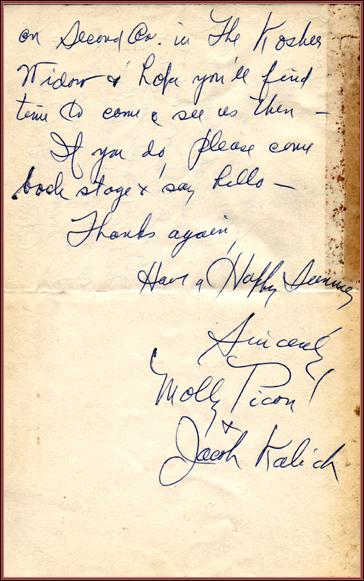 on Second Av. in The Kosher
Widow & hope you'll find
time to come & see us then —
If you do, please come
back stage & say hello —
Thanks again,
Have a Happy Summer
Sincerely
Molly Picon
&
Jacob Kalich